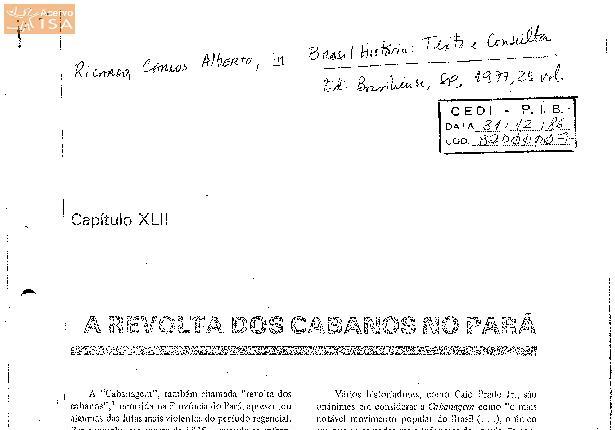 Acervo
ISA
Ricardo, Carlos Alberto, in Brasil História: Texto e Consulta
Ed. Brasiliense, SP, 1977, 2º vol.
CEDI - P. I. B.
DATA 31/12/86
COD.
Capítulo XLII
A REVOLTA DOS CABANOS NO PARÁ
A "Cabanagem", também chamada "revolta dos
cabanos",¹ ocorrida na Província do Pará, apresentou
algumas das lutas mais violentas do período regencial.
Vários historiadores, como Caio Prado Jr., são
unânimes em considerar a Cabanagem como "o mais
notável movimento popular do Brasil (...), o único